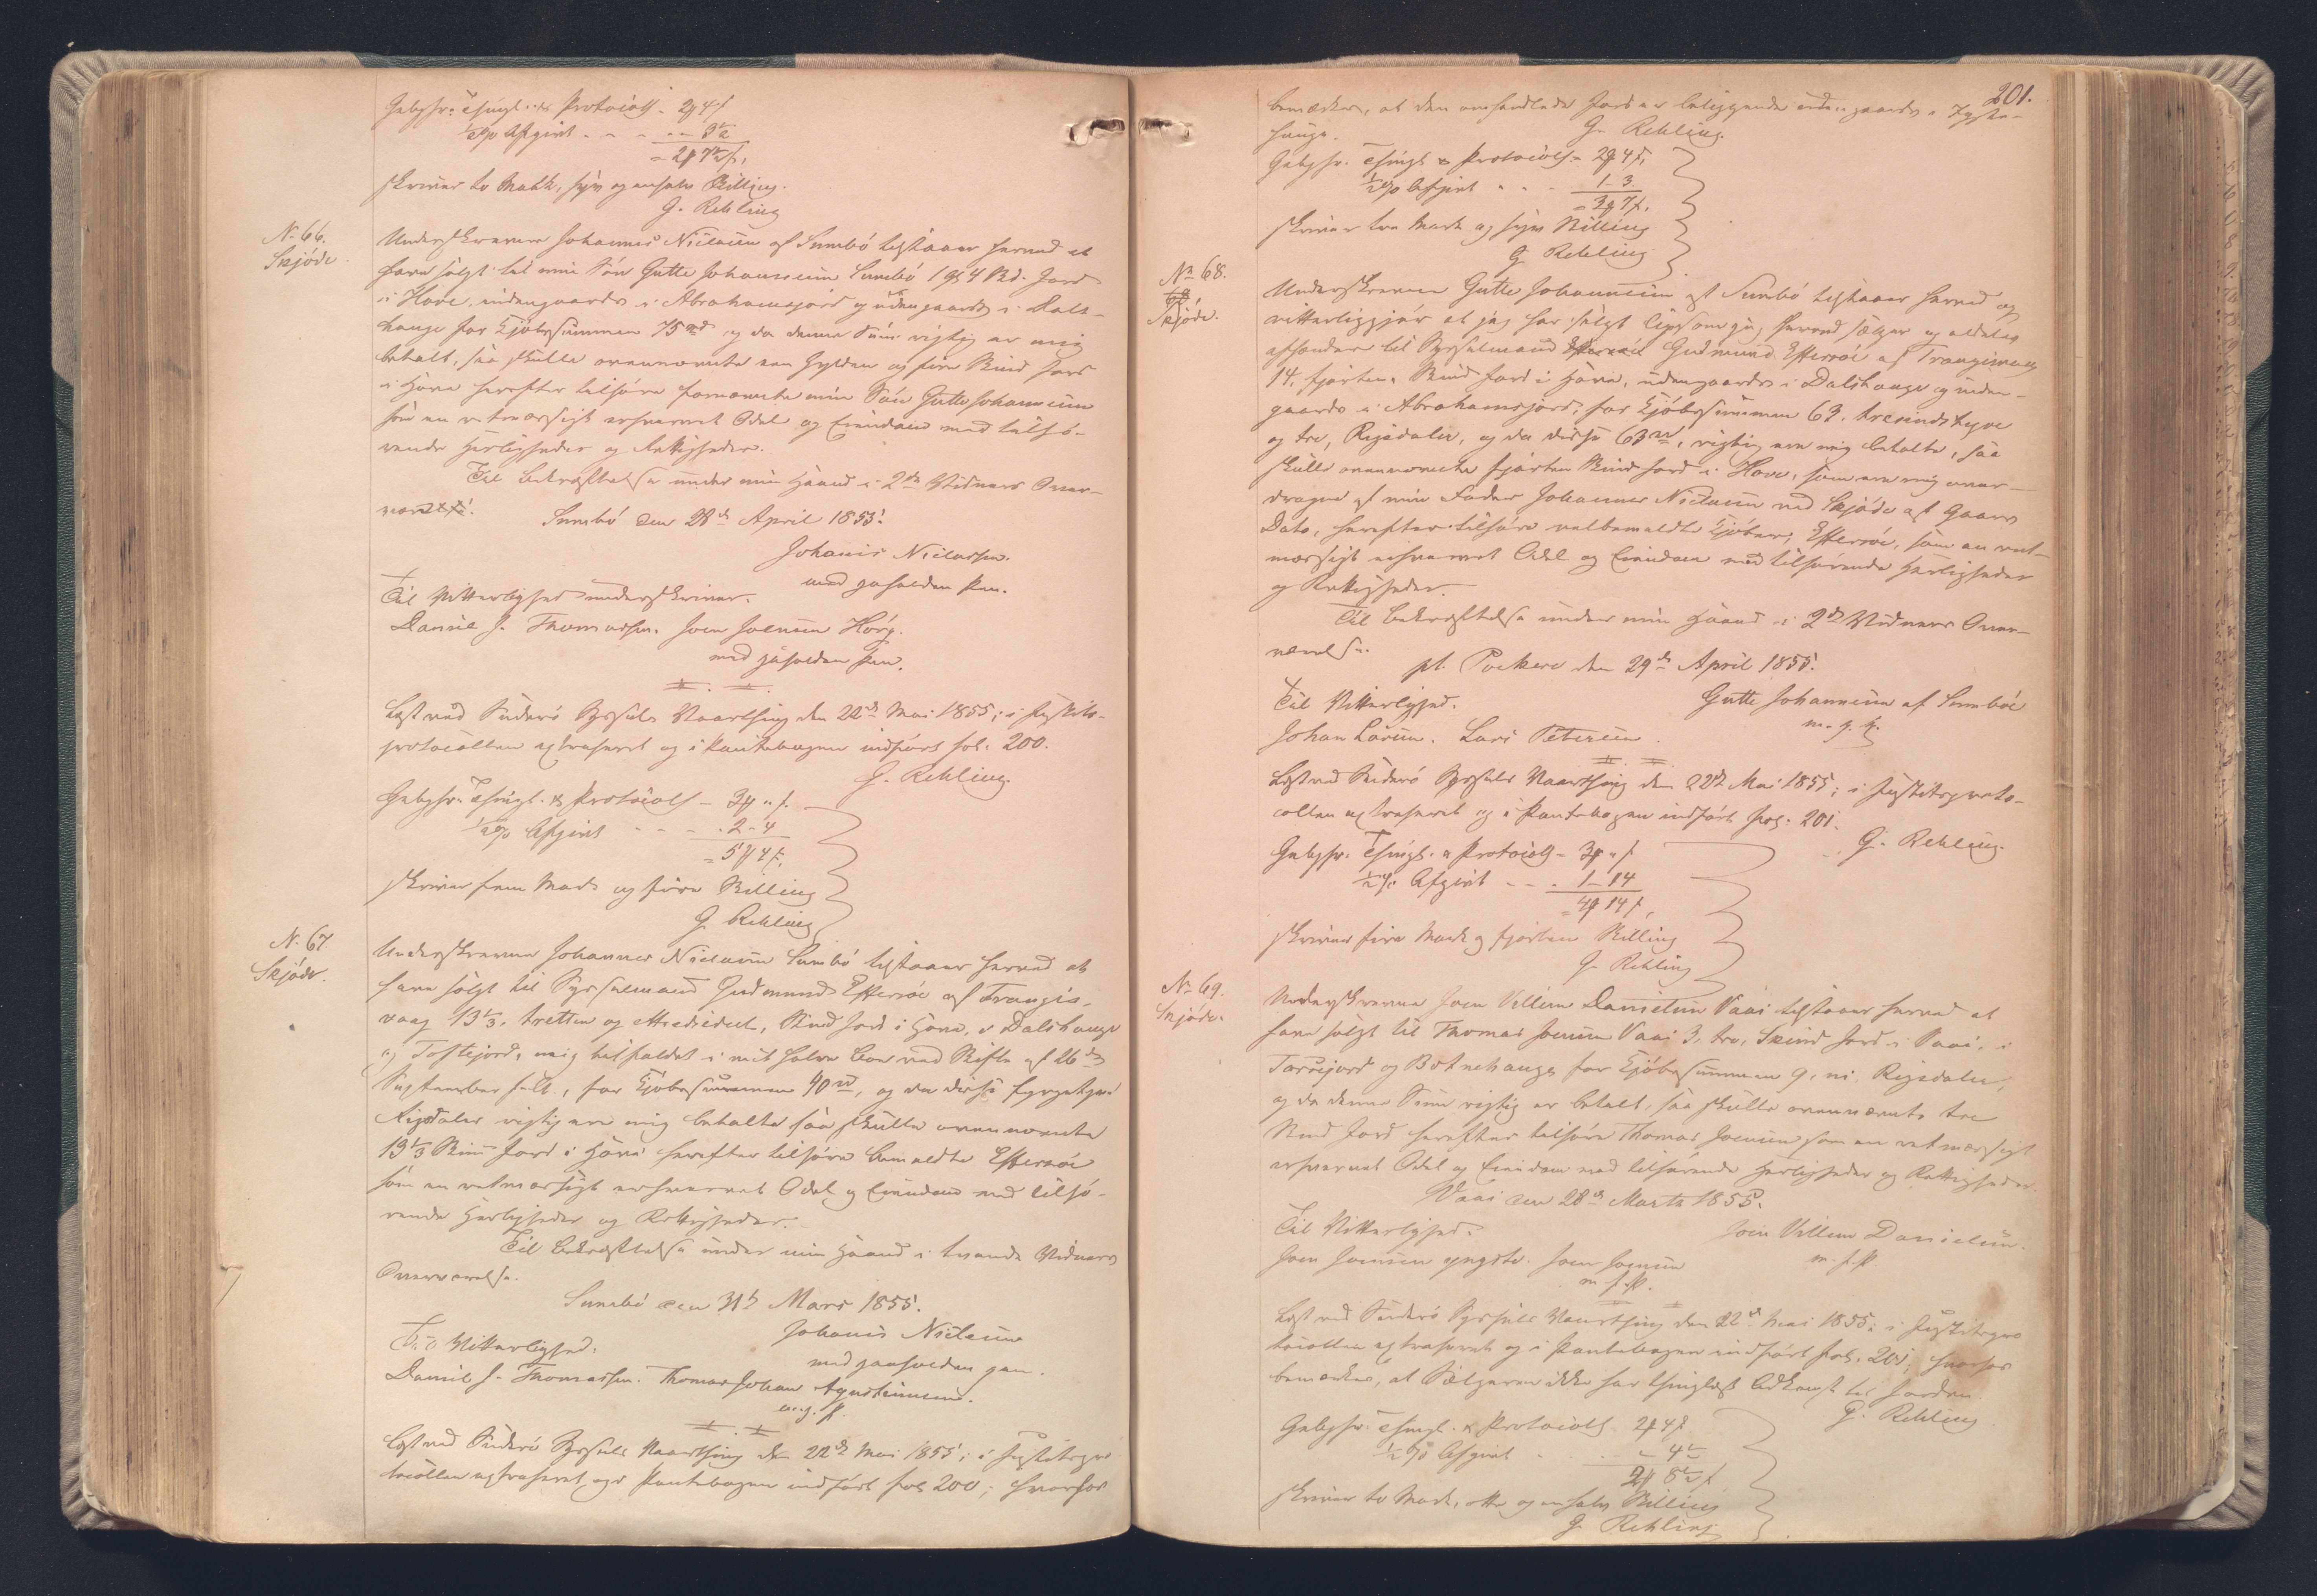 Gebyhr: Thingl. & Protocoll - 2 # 4 ß
½ % Afgivt - - - - " - 3½
= 2 # 7½ ß.
skriver to Mark, syv og en halv Skilling.
G. Rehling
No 66.
Skjøde.
Underskrevne Johannes Niclasen af Sumbø tilstaaer herved at
have solgt til min Søn Gutte Johannesen Sumbø 1 G. 4 Skd. Jord
i Hove, indengaards i Abrahamsjord og udengaards i Dals-
hauge for Kjøbesummen 75 rd og da denne Sum rigtig er mig
betalt, saa skulle ovennævnte een Gylden og fire Skind Jord
i Hove herefter tilhøre fornævnte min Søn Gutte Johannesen
som en retmæssigt erhvervet Odel og Eiendom med tilhø-
rende Herligheder og Rettigheder.
Til Bekræftelse under min Haand i 2de Vidners Over-
værelse.
Sumbø den 28de April 1855.
Johanis Niclassen.
med paaholden Pen.
Til Vitterlighed underskriver.
Daniel J. Thomassen. Joen Joensen Hørg.
med paaholden Pen.
Læst ved Suderø Syssels Vaarthing den 22de Mai 1855; i Justits-
protocollen extraheret og i Pantebogen indført fol. 200.
G. Rehling.
Gebyhr: Thingl. & Protocoll - 3 # " ß.
½ % Afgivt - - - . 2 - 4
= 5 # 4 ß.
skriver fem Mark og fire Skilling
G. Rehling
N. 67.
Skjøde.
Underskrevne Johannes Niclasen Sumbø tilstaaer herved at
have solgt til Sysselmand Gudmund Effersøe af Trangis-
vaag 13⅓, tretten og ettrediedeel, Skind Jord i Hove, i Dalshauge
og Toftejord, mig tilfaldet i mit halve Boe ved Skifte af 26de
September f. A., for Kjøbesummen 40 rd, og da disse fyrgetyve
Rigsdaler rigtig ere mig betalte saa skulle ovennævnte
13⅓ Skind Jord i Hove herefter tilhøre bemeldte Effersøe
som en retmæssigt erhvervet Odel og Eiendom med tilhø-
rende Herligheder og Rettigheder.
Til Bekræftelse under min Haand i tvende Vidners
Overværelse.
Sumbø den 31te Mars 1855.
Johanis Niclasen
med paaholden pen.
Til Vitterlighed:
Daniel J. Thomassen. Thomas Johan Agustinusen.
m. p. P.
Læst ved Suderø Syssels Vaarthing den 22de Mai 1855; i Justitspro-
tocollen extraheret og i Pantebogen indført fol 200; hvorhos
201.
bemærkes, at den omhandlede Jord er beliggende udengaards i
hauge.
G. Rehling.
Gebyhr. Thingl. & Protocoll - 2 # 4 ß,
½ % Afgivt - - - 1 - 3
= 3 # 7 ß.
skriver tre Mark og syv Skilling
G. Rehling
No 68.
Skjøde.
Underskrevne Gutte Johannesen af Sumbø tilstaaer herved og
vitterliggjør at jeg har solgt ligesom jeg herved sælger og aldeles
afhænder til Sysselmand Gudmund Effersøe af Trangisvaag
14, fjorten, Skind Jord i Hove, udengaards i Dalshauge og inden-
gaards i Abrahamsjord, for Kjøbesummen 63, tresindstyve
og tre, Rigsdaler, og da disse 63 rd, rigtig ere mig betalte, saa
skulle ovennævnte fjorten Skind Jord i Hove, som ere mig over-
dragne af min Fader Johannes Niclasen ved Skjøde af Gaars
Dato, herefter tilhøre velbemeldte Kjøber, Effersøe, som en ret-
mæssigt erhvervet Odel og Eiendom med tilhørende Herligheder
og Rettigheder.
Til Bekræftelse under min Haand i 2de Vidners Over-
værelse.
pt. Porkere den 29de April 1855.
Til Vitterlighed.
Gutte Johannesen af Sumbøe
m. p. P.
Johan Larsen. Lars Petersen.
Læst ved Suderø Syssels Vaarthing den 22de Mai 1855; i Justitsproto-
collen extraheret og i Pantebogen indført fol. 201.
G. Rehling.
Gebyhr. Thingl. & Protocoll - 3 # " ß
½ % Afgivt - - . 1 - 14
= 4 # 14 ß,
skriver fire Mark og fjorten Skilling
G. Rehling
No 69.
Skjøde.
Underskrevne Joen Villum Danielsen Vaai tilstaaer herved at
have solgt til Thomas Joensen Vaai 3, tre, Skind Jord i Vaai, i
og Botnehauge for Kjøbesummen 9, ni, Rigsdaler,
og da denne Sum rigtig er betalt, saa skulle ovennævnte tre
Skind Jord herefter tilhøre Thomas Joensen som en retmæssigt
erhvervet Odel og Eiendom med tilhørende Herligheder og Rettigheder.
Vaai den 28de Marts 1855.
Til Vitterlighed.
Joen Villum Danielsen.
m. f. P.
Joen Joensen yngste. Joen Joensen
m. f. P.
Læst ved Suderø Syssels Vaarthing den 22de Mai 1855; i Justitspro-
tocollen extraheret og i Pantebogen indført fol. 201; hvorhos
bemærkes, at Sælgeren ikke har thinglæst Adkomst til Jorden.
G. Rehling
Gebyhr. Thingl. & Protocoll 2 # 4 ß
½ % Afgivt - . - " - 4½
2 # 8½ ß
skriver to Mark, otte og en halv Skilling
G. Rehling